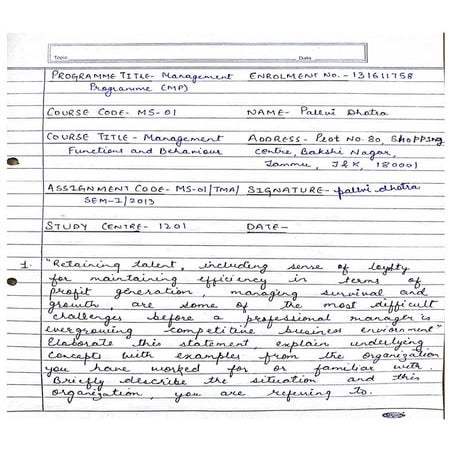 Topic Date
PROGRAMME TITLE- Management ENROLMENT NO. - 131611758
Programme (MP)
COURSE CODE- MS-01 NAME- Pallvi Dhotra
COURSE TITLE - Management ADDRESS- Plot No. 80, Shopping
Functions and Behaviour Centre, Bakshi Nagar,
Jammu, J&K, 180001
ASSIGNMENT CODE- MS-01/TMA/ SIGNATURE- pallvi dhotra
SEM-I/2013
STUDY CENTRE- 1201 DATE-
1. "Retaining talent, including sense of loyalty
for maintaining efficiency in terms of
profit generation, managing survival and
growth, are some of the most difficult
challenges before a professional manager is
evergrowing competitive business enviorment"
Elaborate this statement, explain underlying
concepts with examples from the organization
you have worked for or familiar with.
Briefly describe the situation and this
organization, you are refering to.